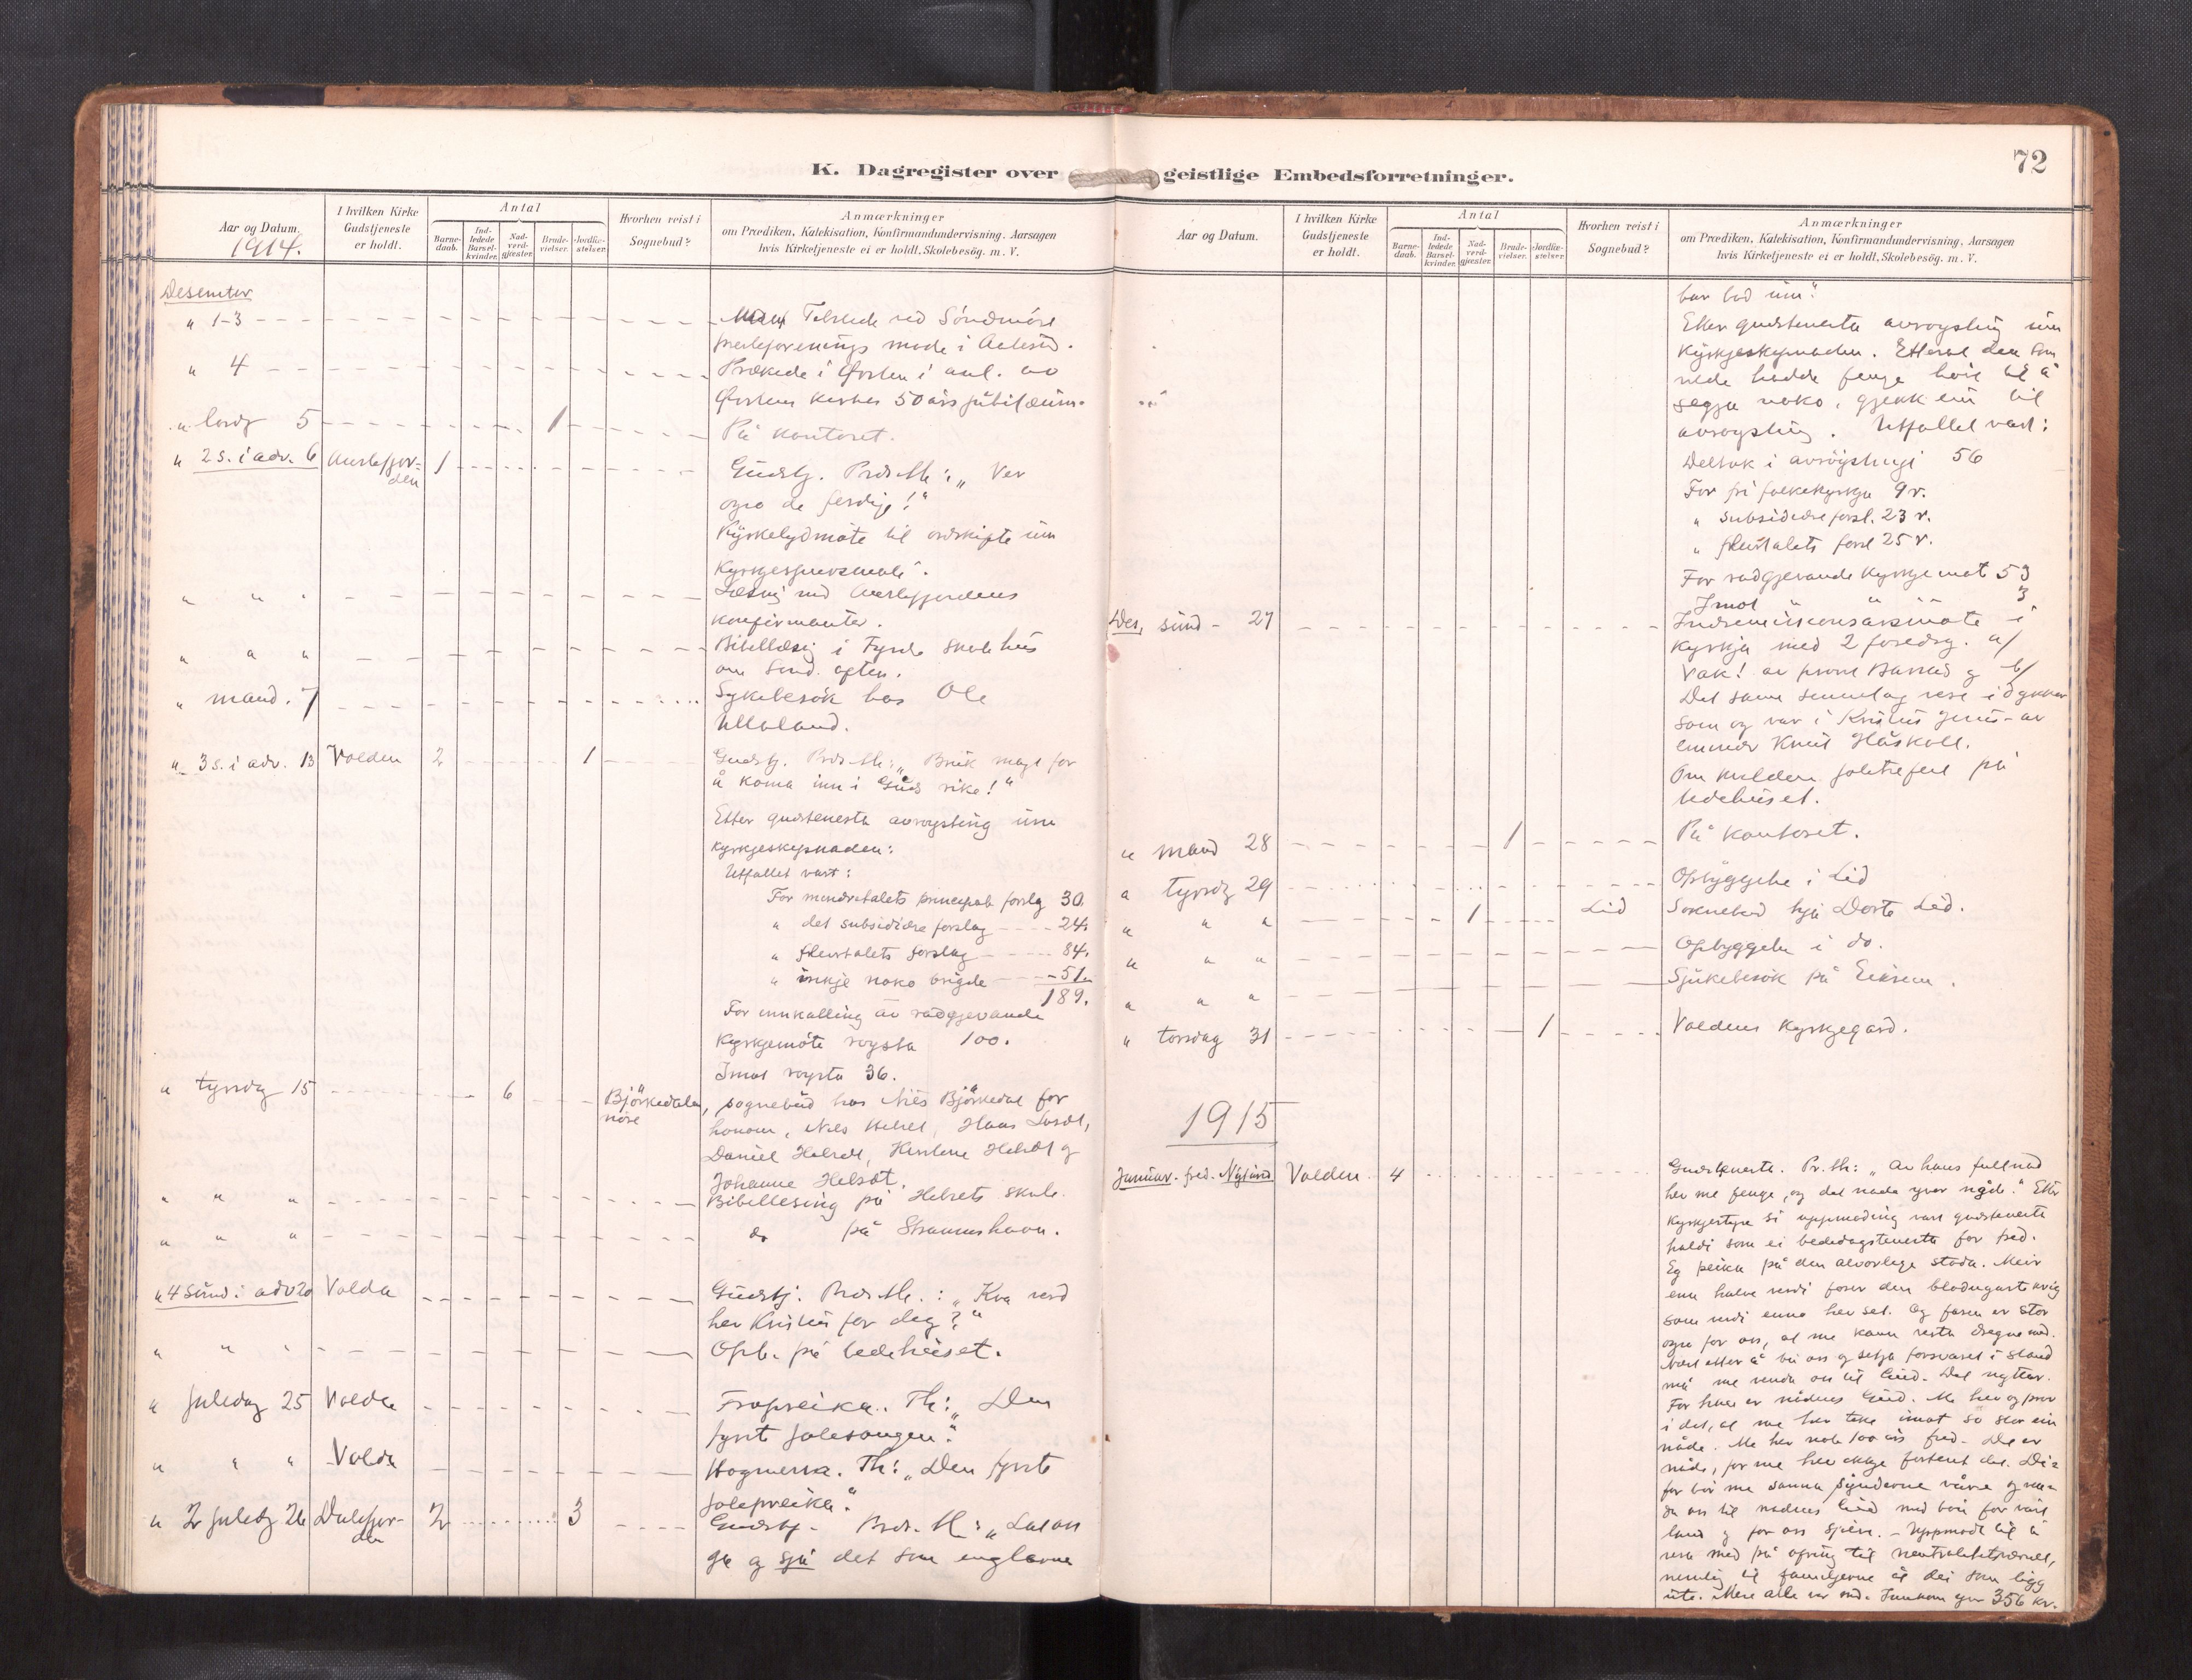 K. Dagregister over geistlige Embedsforretninger.
72
Aar og Datum.
1914.
I hvilken Kirke Gudstjeneste er holdt.
Antal
Barne-daab.
Ind-ledede Barsel-kvinder.
Nad-verd-gjester.
Brude-vielser.
Jordfæ-stelser.
Hvorhen reist i Sognebud?
Anmærkninger
om Prædiken, Katekisation, Konfirmandundervisning. Aarsagen
hvis Kirketjeneste ei er holdt, Skolebesög. m. V.
Desember
" 1-3
ved Söndmöre
" 4
Prækede i Örsten i anl. av
Örsten kirkes 50 års jubilæum.
" lördg 5 1 På kontoret.
" 2 s. i adv. 6 Austefjor-den 1 Gudstj. Præk. th: „Ver
ogso de ferdige!"
Kyrkelydmöte til ordskifte um
Kyrkjespursmål.
" " " med Austefjordens
konfirmanter.
" " " Bibellesng i Fyrde skolehus
om Sund. aften.
" mand. 7 Sykebesök hos Ole
" 3 s. i adv. 13 Volden 2 1 Gudstj. Præk. th: „Bruk magt for
å koma inn i Guds rike!"
Etter gudstenesta avröysting um
kyrkjeskipnaden:
Utfallet vart:
For mindretalets principale forslag 30.
" det subsidiære forslag 24.
" fleirtalets forslag 84.
" inkje noko brigde 51.
189.
For innkalling av rådgjevande
Kyrkjemöte röysta 100.
Imot röysta 36.
" tyrsdg 15 6 Björkedalen, sognebud hos Nils Björkedal for
honom, Nils Helset, Hans
Daniel Helset, Helset og
Johanne Helset.
" " " Bibellesing på Helsets skule.
" " " do på Straumshavn.
" 4 sund i adv 20 Volda Gudstj. Præk. th.: „Kva verd
hev Kristus for deg?"
" " " Opb. på bedehuset.
" juledag 25 Volda Fropreika. Th: „Den
fyrste jolesongen."
" " " Volda Högmessa. Th: „Den fyrste
jolepreika."
" 2 juledg 26 Dalsfjor-den 2 3 Gudstj. Præk. th: „Lat oss
gå og sjå det som englarne
Aar og Datum.
I hvilken Kirke Gudstjeneste er holdt.
Antal
Barne-daab.
Ind-ledede Barsel-kvinder.
Nad-verd-gjester.
Brude-vielser.
Jordfæ-stelser.
Hvorhen reist i Sognebud?
Anmærkninger
om Prædiken, Katekisation, Konfirmandundervisning, Aarsagen
hvis Kirketjeneste ei er holdt, Skolebesög. m. V.
bar bod um."
Etter gudstenesta avröysting um
Kyrkjeskipnaden. Etterat den som
vilde hadde fenge höve til å
segja noko, gjekk ein til
avröysting. Utfallet vart:
Deltok i avröystingi 56
For fri folkekyrkja 9 r.
" subsidiære forsl. 23 r.
" fleirtalets forsl 25 r.
For rådgjevande kyrkjemöt 53
Imot " " 3
Des. sund - 27 Indremisionsårsmöte i
Kyrkja med 2 foredrg. a/
Vak! av prost Barstad og b/
Det same sinnelag vere i dykker
som og var i Kristus Jesus - av
emissær Knut Håskoll.
Om kvelden joletrefest på
bedehuset.
" mand 28 1 På kontoret.
" tyrsdg 29 Opbyggelse i Lid
" " " 1 Lid Soknebud hjå Dorte Lid.
" " " Opbyggelse i do.
" " " Sjukebesök på Eiksem.
" torsdag 31 1 Voldens Kyrkjegard.
1915
Januar. fred. Nyårsd. Volden 4 Gudstenesta. Pr. th: „Av hans fullnad
hev me fenge, og det nåde yver nåde." Etter
Kyrkjestyre si uppmoding vart gudstenesta
haldi som ei bededagstenesta for fred.
Eg peika på den alvorlege stoda. Meir
enn halve verdi förer den blodugaste krig
som verdi enno hev set. Og faren er stor
ogso for oss, at me kann verta dregne med.
Nest etter å bu oss og setja forsvaret i stand
må me venda oss til Gud. Det nyttar.
For han er nådens Gud. Me hev og prov
i det, at me hev teke imot so stor ein
nåde. Me hev note 100 års fred. De er
nåde, for me hev ikkje fortent det. Di-
for bör me sanna synderne våre og ven-
da oss til nådens Gud med bön for vårt
land og for oss sjölve. - Uppmoda til å
vera med på ofring til neutralitetsvernet,
nemleg til familjerne åt dei som ligg
ute. Mest alle var med. Innkom yver 356 kr.